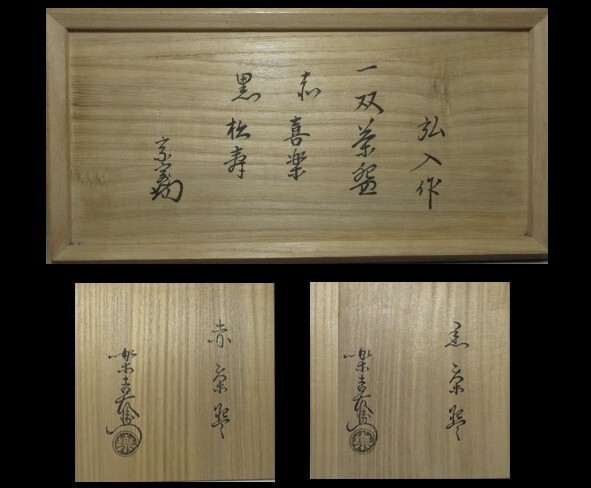 弘入作
一双茶碗
赤 喜楽
黒 松寿
赤茶碗
楽吉左衛門
楽
黒茶碗
楽吉左衛門
楽